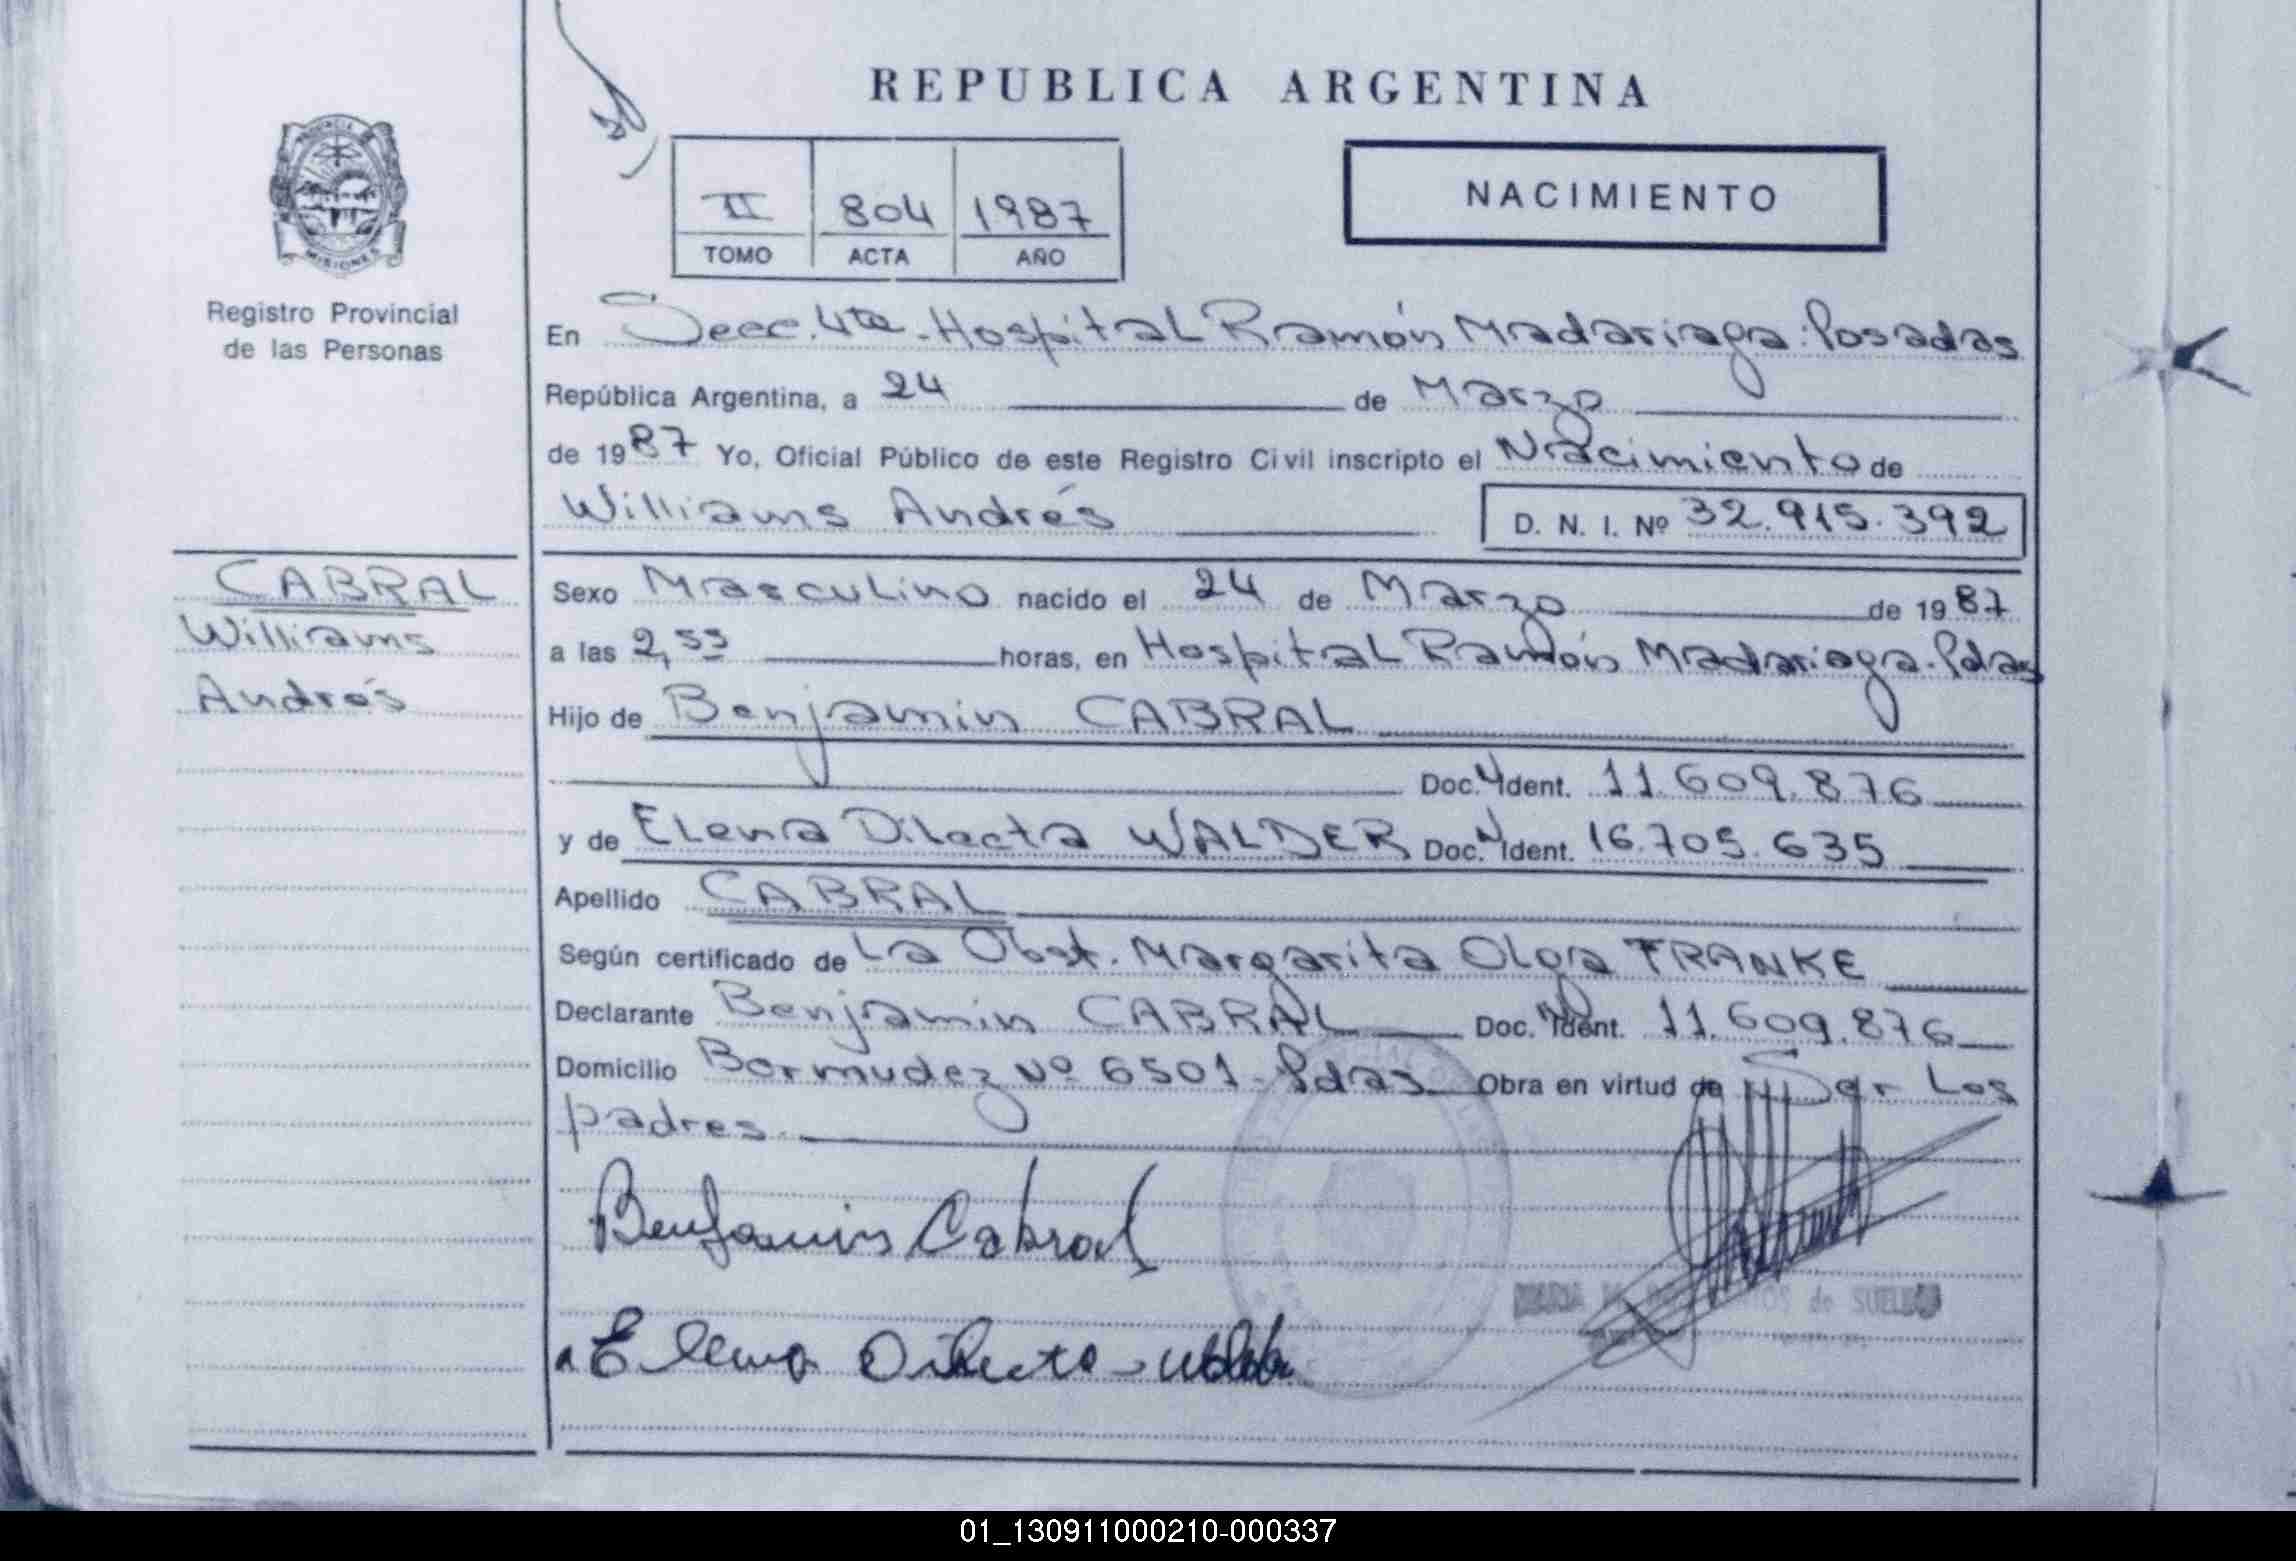 REPUBLICA ARGENTINA
PROVINCIA DE
MISIONES
Registro Provincial
de las Personas
II 804 1987
TOMO ACTA AÑO
NACIMIENTO
En Secc. 4ta - Hospital Ramón Madariaga. Posadas
República Argentina, a 24 de Marzo
de 1987 Yo, Oficial Público de este Registro Civil inscripto el Nacimiento de
Williams Andrés D. N. I. Nº 32.915.392
CABRAL
Williams
Andrés
Sexo Masculino nacido el 24 de Marzo de 1987
a las 2,55 horas, en Hospital Ramón Madariaga. Pdas
Hijo de Benjamin CABRAL
Doc. Ident. 11.609.876
y de Elena Dilecta WALDER Doc. Ident. 16.705.635
Apellido CABRAL
Según certificado de La Obst. Margarita Olga FRANKE
Declarante Benjamin CABRAL Doc. Ident. 11.609.876
Domicilio Bermudez Nº 6501 - Pdas Obra en virtud de Ser Los
padres.
Benjamin Cabral
Elena Dilecta
MARIA de SUELDO
01_130911000210-000337